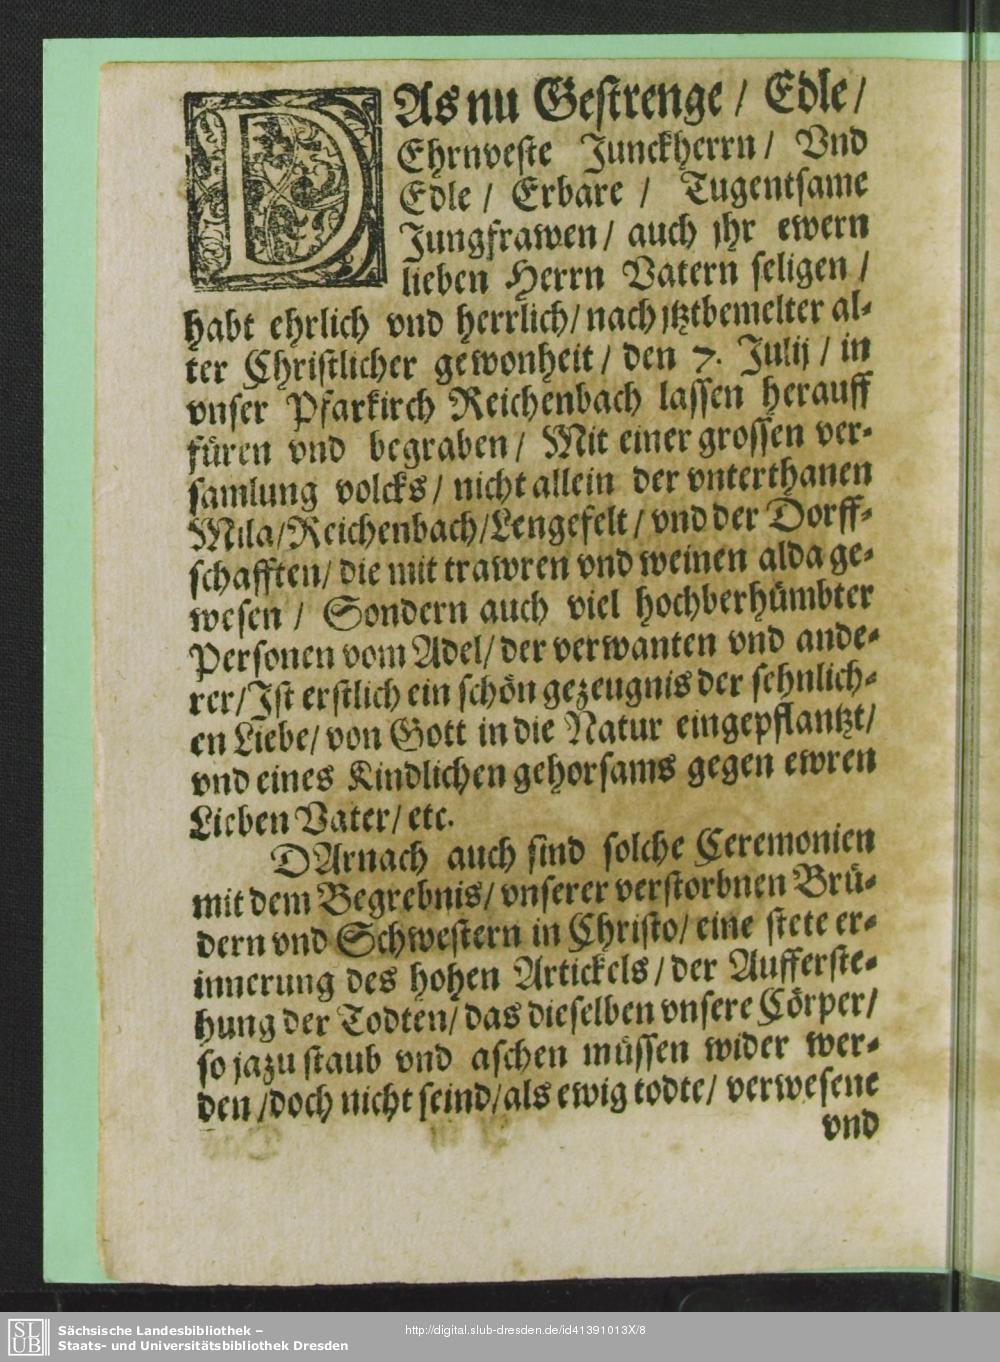 DAs nu Gestrenge / Edle /
Ehrnveste Junckherrn / Vnd
Edle / Erbare / Tugentsame
Jungfrawen / auch jhr ewern
lieben Herrn Vatern seligen /
habt ehrlich vnd herrlich / nach jtztbemelter al-
ter Christlicher gewonheit / den 7. Julij / in
vnser Pfarkirch Reichenbach lassen herauff
füren vnd begraben / Mit einer grossen ver-
samlung volcks / nicht allein der vnterthanen
Mila / Reichenbach / Lengefelt / vnd der Dorff-
schafften / die mit trawren vnd weinen alda ge-
wesen / Sondern auch viel hochberhümbter
Personen vom Adel / der verwanten vnd ande-
rer / Jst erstlich ein schön gezeugnis der sehnlich-
en Liebe / von Gott in die Natur eingepflantzt /
vnd eines Kindlichen gehorsams gegen ewren
Lieben Vater / etc.
DArnach auch sind solche Ceremonien
mit dem Begrebnis / vnserer verstorbnen Brü-
dern vnd Schwestern in Christo / eine stete er-
innerung des hohen Artickels / der Aufferste-
hung der Todten / das dieselben vnsere Cörper /
so ja zu staub vnd aschen müssen wider wer-
den / doch nicht seind / als ewig todte / verwesene
vnd
SLUB
Sächsische Landesbibliothek –
Staats- und Universitätsbibliothek Dresden
http://digital.slub-dresden.de/id41391013X/8